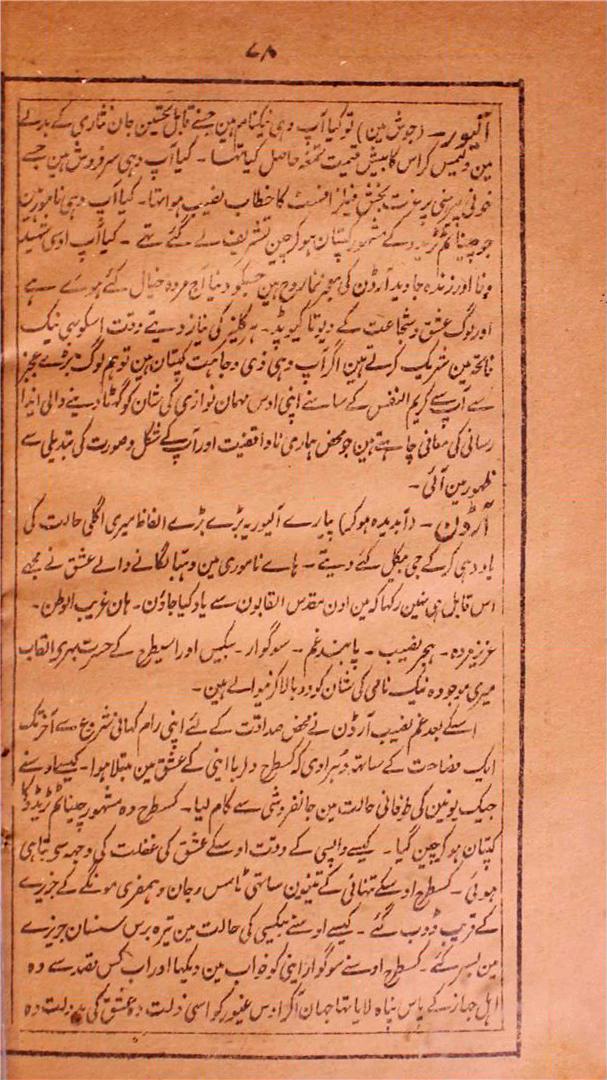 ۷۸
آلیور۔ (جوش مین) توکیا آپ وہی نیکنام ہین جسنے قابل تحسین جان نثاری کے بدلے
مین وکیمس کراس کا بیش قیمت تمغہ حاصل کیا تہا۔ کیا آپ وہی سرفروش ہین جسے
خونی پیرسنی پر عزت بخش فیلڈ افسٹ کا خطاب نصیب ہوا تہا۔ کیا آپ وہی نامور ہین
جو چینا ٹم ٹریڈ کے مشہور کپتان ہوکر چین تشریف لے گئے تہے ۔ کیا آپ اوسی شہید
وفا اور زندہ جاوید آرڈن کی معجز نما روح ہین جسکو دنیا آج مردہ خیال کئے ہوے ہے
اور لوگ عشق و شجاعت کے دیوتا کیوپڈ۔ ہرکلیز کی نیاز دیتے وقت اسکو بہی نیک
فاتحہ مین شریک کرتے ہین اگر آپ وہی ذی وجاہت کپتان ہین تو ہم لوگ بڑے عجز
سے آپ سے کریم النفس کے سامنے اپنی اوس مہمان نوازی کی شان کو گہٹا دینے والی ایذا
رسانی کی معافی چاہتے ہین جو محض ہماری ناواقفیت اور آپ کے شکل و صورت کی تبدیلی سے
ظہور مین آئی ۔
آرڈن ۔ (آبدیدہ ہوکر) پیارے آلیور یہ بڑے بڑے الفاظ میری اگلی حالت کی
یاد دہی کرکے جی بیکل کئے دیتے ۔ ہاے ناموری مین دہبا لگانے والے عشق نے مجھے
اس قابل ہی نہین رکہا کہ مین اون مقدس القابون سے یاد کیا جاؤن۔ ہان غریب الوطن۔
عزیز مردہ ۔ ہجر نصیب ۔ پابند غم ۔ سوگوار ۔ بیکس اور اسیطرح کے حسرت بہری القاب
میری موجودہ نیک نامی کی شان کو دوبالا کرنیوالے ہین۔
اسکے بعد غم نصیب آرڈن نے محض صداقت کے لئے اپنی رام کہانی شروع سے آخر تک
ایک فصاحت کے ساتھ دُہرا دی کہ کسطرح دلربا اینی کے عشق مین مبتلا ہوا۔ کیسے اوسنے
جیک یونین کی طوفانی حالت مین جانفروشی سے کام لیا۔ کسطرح وہ مشہور چینا ٹم ٹریڈ کا
کپتان ہوکر چین گیا۔ کیسے واپسی کے وقت اوسکے عشق کی غفلت کی وجہ سے تباہی
ہوئی ۔ کسطرح اوسکے تنہائی کے تینون ساتہی ٹامس و جان و ہمفری مونگے کے جزیرے
کے قریب ڈوب گئے ۔ کیسے اوسنے بیکسی کی حالت مین تیرہ برس سنسان جزیرے
مین بسر کئے ۔ کسطرح اوسنے سوگوار اینی کو خواب مین دیکہا اور اب کس قصد سے وہ
اہل جہاز کے پاس پناہ لایا تہا جہان آکر اوس غیور کو اسی ذلت دہ عشق کی بدولت وہ